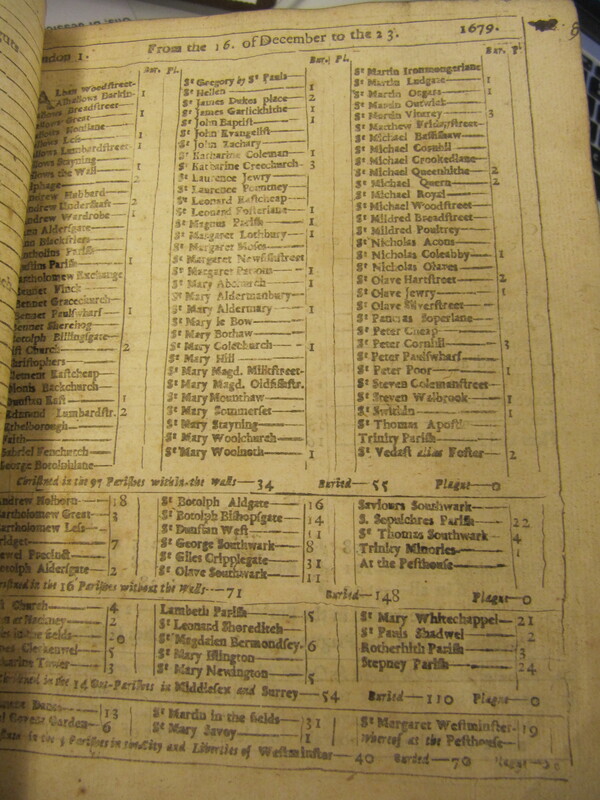 London 1. From the 16. of December to the 23. 1679.
Bur. Pl.
Alban Woodstreet—
Alhallows Barkin— 1
Breadstreet—
Great— 1
Honilane—
Less— 1
Lumbardstreet— 1
Stayning—
the Wall— 1
Alphage— 2
Andrew Hubbard—
Andrew Undershaft— 2
Andrew Wardrobe— 1
Aldersgate—
Blackfriers—
Parish—
Austins Parish— 1
Bartholomew Exchange
Bennet Finck—
Bennet Gracechurch—
Bennet Paulswharf— 1
Bennet Sherehog—
Botolph Billingsgate—
Christ Church— 2
Christophers—
Clement Eastcheap—
Dionis Backchurch—
Dunstan East— 1
Edmund Lumbardstr. 2
Ethelborough—
Faith—
Gabriel Fenchurch—
George Botolphlane—
Bur. Pl.
St Gregory by St Pauls—
St Hellen— 1
St James Dukes place— 2
St James Garlickhithe— 1
St John Baptist— 1
St John Evangelist—
St John Zachary—
St Katharine Coleman— 1
St Katharine Creechurch— 3
St Laurence Jewry—
St Laurence Pountney—
St Leonard Eastcheap—
St Leonard Fosterlane— 1
St Magnus Parish— 1
St Margaret Lothbury— 1
St Margaret Moses—
St Margaret Newfishstreet
St Margaret Pattons— 1
St Mary Abchurch— 1
St Mary Aldermanbury—
St Mary Aldermary— 1
St Mary le Bow—
St Mary Bothaw—
St Mary Colechurch— 1
St Mary Hill—
St Mary Magd. Milkstreet—
St Mary Magd. Oldfishstr.
St Mary Mounthaw—
St Mary Sommerset—
St Mary Stayning—
St Mary Woolchurch—
St Mary Woolnoth— 1
Bur. P.
St Martin Ironmongerlane
St Martin Ludgate— 1
St Martin Orgars— 1
St Martin Outwich—
St Martin Vintrey— 3
St Matthew Fridaystreet—
St Michael Bassishaw—
St Michael Cornhill—
St Michael Crookedlane—
St Michael Queenhithe— 2
St Michael Quern— 2
St Michael Royal—
St Michael Woodstreet—
St Mildred Breadstreet—
St Mildred Poultrey—
St Nicholas Acons—
St Nicholas Coleabby— 1
St Nicholas Olaves—
St Olave Hartstreet— 2
St Olave Jewry— 1
St Olave Silverstreet—
St Pancras Soperlane—
St Peter Cheap—
St Peter Cornhil— 3
St Peter Paulswharf—
St Peter Poor— 1
St Steven Colemanstreet—
St Steven Walbrook— 1
St Swithin— 1
St Thomas Apostle—
Trinity Parish—
St Vedast alias Foster— 2
Christned in the 97 Parishes within the Walls— 34 Buried— 55 Plague— 0
Andrew Holborn— 18
Bartholomew Great— 3
Bartholomew Less—
Bridget— 7
Bridewel Precinct—
Botolph Aldersgate— 2
St Botolph Aldgate— 16
St Botolph Bishopsgate— 14
St Dunstan West— 11
St George Southwark— 8
St Giles Cripplegate— 31
St Olave Southwark— 11
Saviours Southwark—
S. Sepulchres Parish— 22
St Thomas Southwark— 4
Trinity Minories— 1
At the Pesthouse—
Christned in the 16 Parishes without the Walls— 71 Buried— 148 Plague— 0
Christ Church— 4
John at Hackney— 2
Giles in the fields— 0
James Clerkenwel— 5
Katharine Tower— 3
Lambeth Parish— 5
St Leonard Shoreditch—
St Magdalen Bermondsey. 6
St Mary Islington—
St Mary Newington— 5
St Mary Whitechappel— 21
St Pauls Shadwel— 2
Rotherhith Parish— 3
Stepney Parish— 24
Christned in the 14 Out-Parishes in Middlesex and Surrey— 54 Buried— 110 Plague— 0
Danes— 13
Covent Garden— 6
St Martin in the fields— 31
St Mary Savoy— 1
St Margaret Westminster— 19
Whereof at the Pesthouse—
in the 5 Parishes in the City and Liberties of Westminster— 40 Buried— 70 Plague—